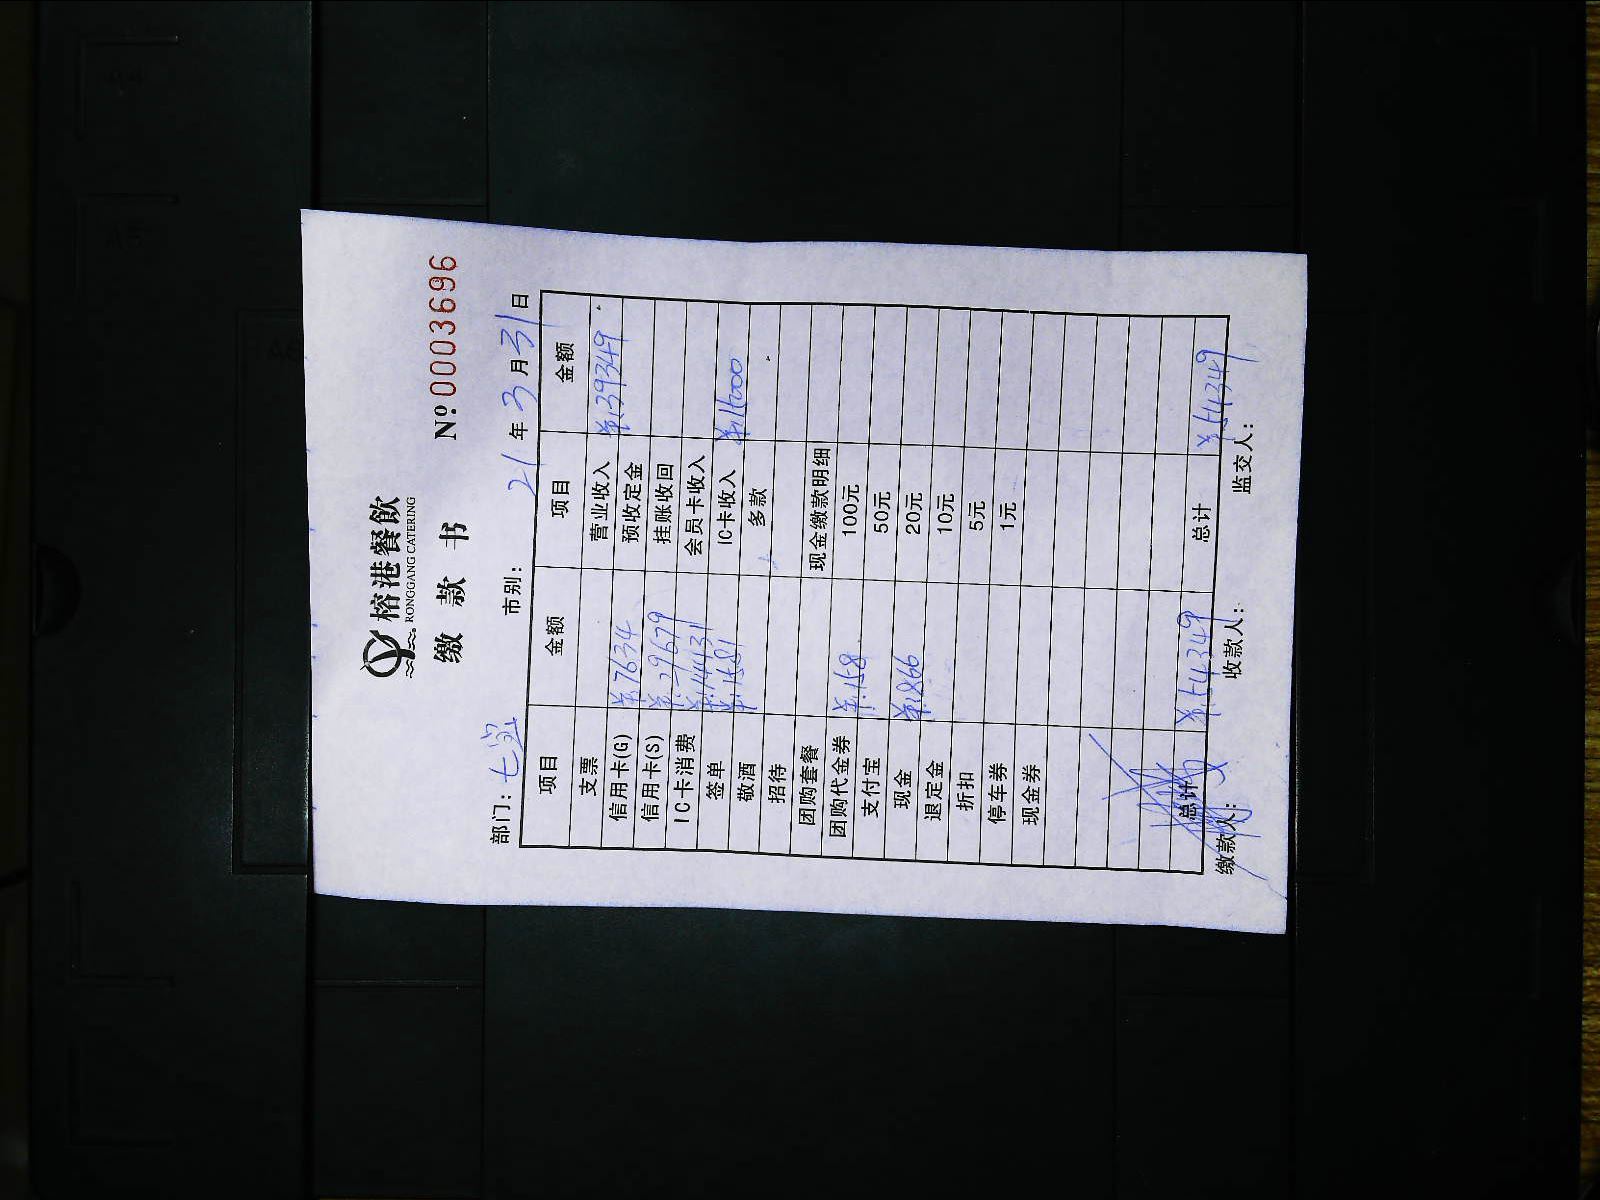 榕港餐飲
RONGGANG CATERING
缴 款 书 №0003696
部门: 市别: 21年3月31日
项目 金额 项目 金额
支票 营业收入 ¥:39349
信用卡(G) ¥:7634 预收定金
信用卡(S) ¥:29679 挂账收回
IC卡消费 ¥:14431 会员卡收入
签单 ¥:1581 IC卡收入 ¥:15000
敬酒 多款
招待
团购套餐 现金缴款明细
团购代金券 ¥:158 100元
支付宝 50元
现金 ¥:866 20元
退定金 10元
折扣 5元
停车券 1元
现金券
总计 ¥:54349 总计 ¥:54349
缴款人: 收款人: 监交人: